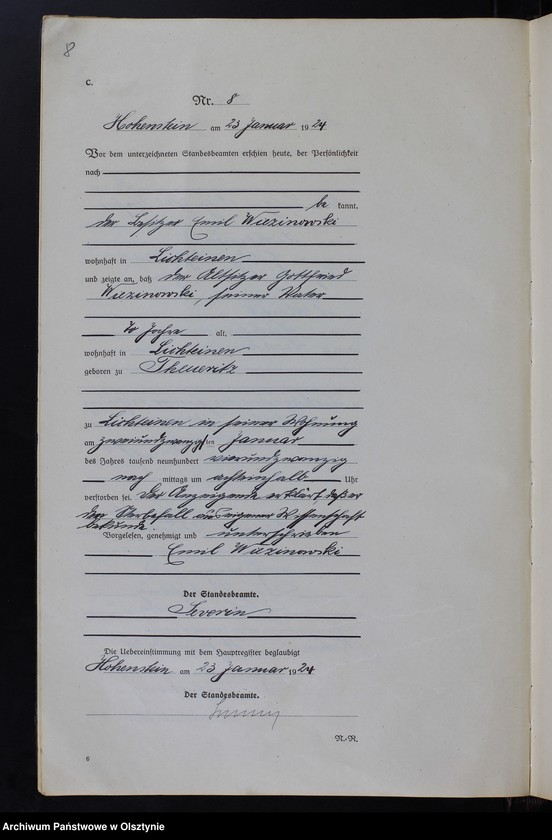 8
C.
Nr. 8
Hohenstein am 23 Januar 1924
Vor dem unterzeichneten Standesbeamten erschien heute, der Persönlichkeit
nach
be kannt,
der Besitzer Emil Wiezinowski
wohnhaft in Lichteinen
und zeigte an, daß der Altsitzer Gottfried
Wiezinowski, seiner Vater
70 Jahre alt,
wohnhaft in Lichteinen
geboren zu Theueritz
zu Lichteinen in seiner Wohnung
am zweiundzwanzigsten Januar
des Jahres tausend neunhundert vierundzwanzig
nach mittags um achteinhalb Uhr
verstorben sei. Der Anzeigende erklärt daß er
den Sterbefall aus eigener Wissenschaft
bekunde
Vorgelesen, genehmigt und unterschrieben
Emil Wiezinowski
Der Standesbeamte.
Severin
Die Uebereinstimmung mit dem Hauptregister beglaubigt
Hohenstein am 23 Januar 1924
Der Standesbeamte.
N.-R.
6
Archiwum Państwowe w Olsztynie